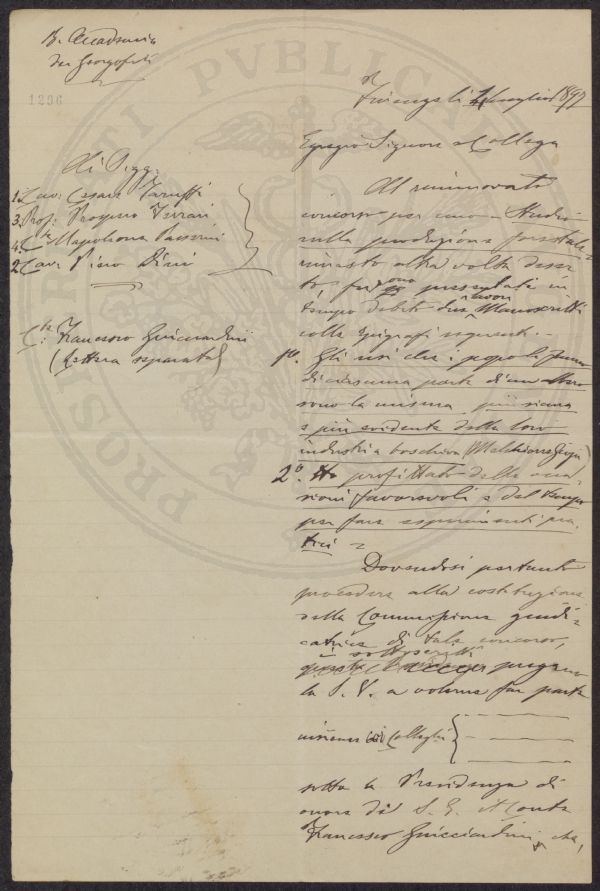 R. Accademia
dei Georgofili
1296
Ai Sigg.
1. Cav. Cesare Taruffi
3. Prof. Prospero Ferrari
4. Cte Napoleone Passerini
2. Cav. Piero Dini
Cte Francesco Guicciardini
(lettera separata)
Firenze li Luglio 1897
Egregio Signore e Collega
Al rinnovato
concorso per uno - Studio
sulla produzione forestale
rimasto altra volta deser
to, furono presentati in
tempo debito due Manoscritti
colle epigrafi seguenti. -
1o. Gli usi che i popoli fanno
di ciascuna parte di un albero
sono la misura più sicura
e più evidente della loro
industria boschiva (Melchiorre Gioja)
2o. Ho profittato delle occa
sioni favorevoli e del tempo
per fare esperimenti pra
tici
Dovendosi pertanto
procedere alla costituzione
della Commissione giudi
catrice di tale concorso,
i sottoscritti pregano
la S. V. a volerne far parte
insieme coi Colleghi
sotto la Presidenza di
onore di S. E. il Conte
Francesco Guicciardini, che,
PROSPERITATI PVBLICAE